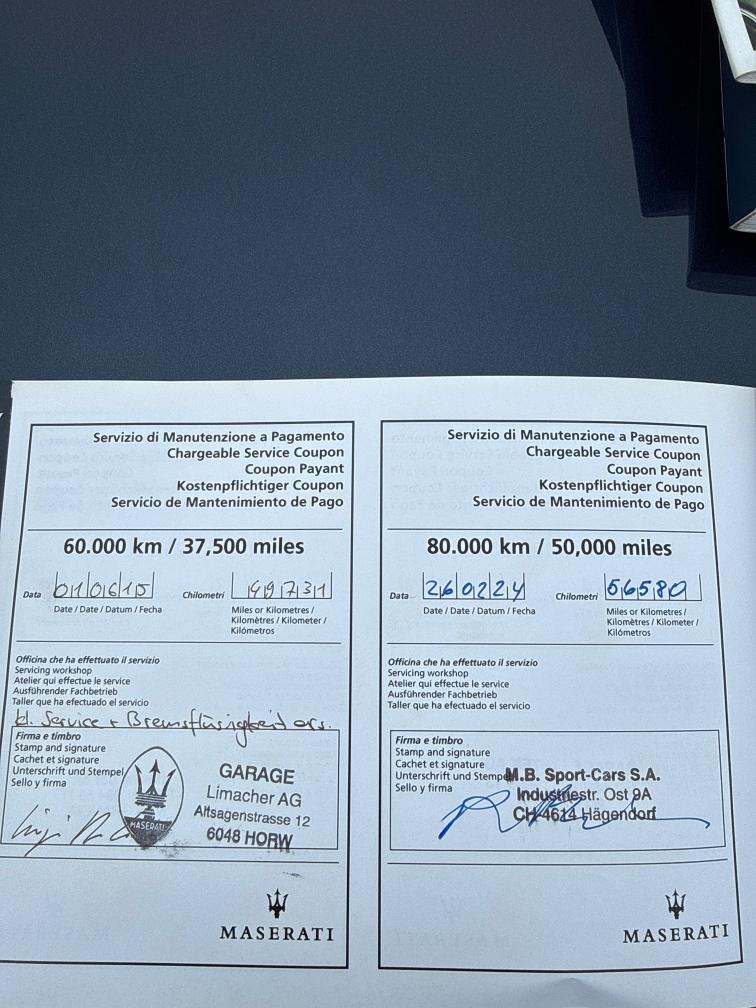 Servizio di Manutenzione a Pagamento
Chargeable Service Coupon
Coupon Payant
Kostenpflichtiger Coupon
Servicio de Mantenimiento de Pago
60.000 km / 37,500 miles
Data 010615 Chilometri 49731
Date / Date / Datum / Fecha
Miles or Kilometres /
Kilomètres / Kilometer /
Kilómetros
Officina che ha effettuato il servizio
Servicing workshop
Atelier qui effectue le service
Ausführender Fachbetrieb
Taller que ha efectuado el servicio
kl. Service + Bremsflüsigkeit ers.
Firma e timbro
Stamp and signature
Cachet et signature
Unterschrift und Stempel
Sello y firma
MASERATI
GARAGE
Limacher AG
Altsagenstrasse 12
6048 HORW
MASERATI
Servizio di Manutenzione a Pagamento
Chargeable Service Coupon
Coupon Payant
Kostenpflichtiger Coupon
Servicio de Mantenimiento de Pago
80.000 km / 50,000 miles
Data 260224 Chilometri 56580
Date / Date / Datum / Fecha
Miles or Kilometres /
Kilomètres / Kilometer /
Kilómetros
Officina che ha effettuato il servizio
Servicing workshop
Atelier qui effectue le service
Ausführender Fachbetrieb
Taller que ha efectuado el servicio
Firma e timbro
Stamp and signature
Cachet et signature
Unterschrift und Stempel
Sello y firma
M.B. Sport-Cars S.A.
Industriestr. Ost 9A
CH-4614 Hägendorf
MASERATI